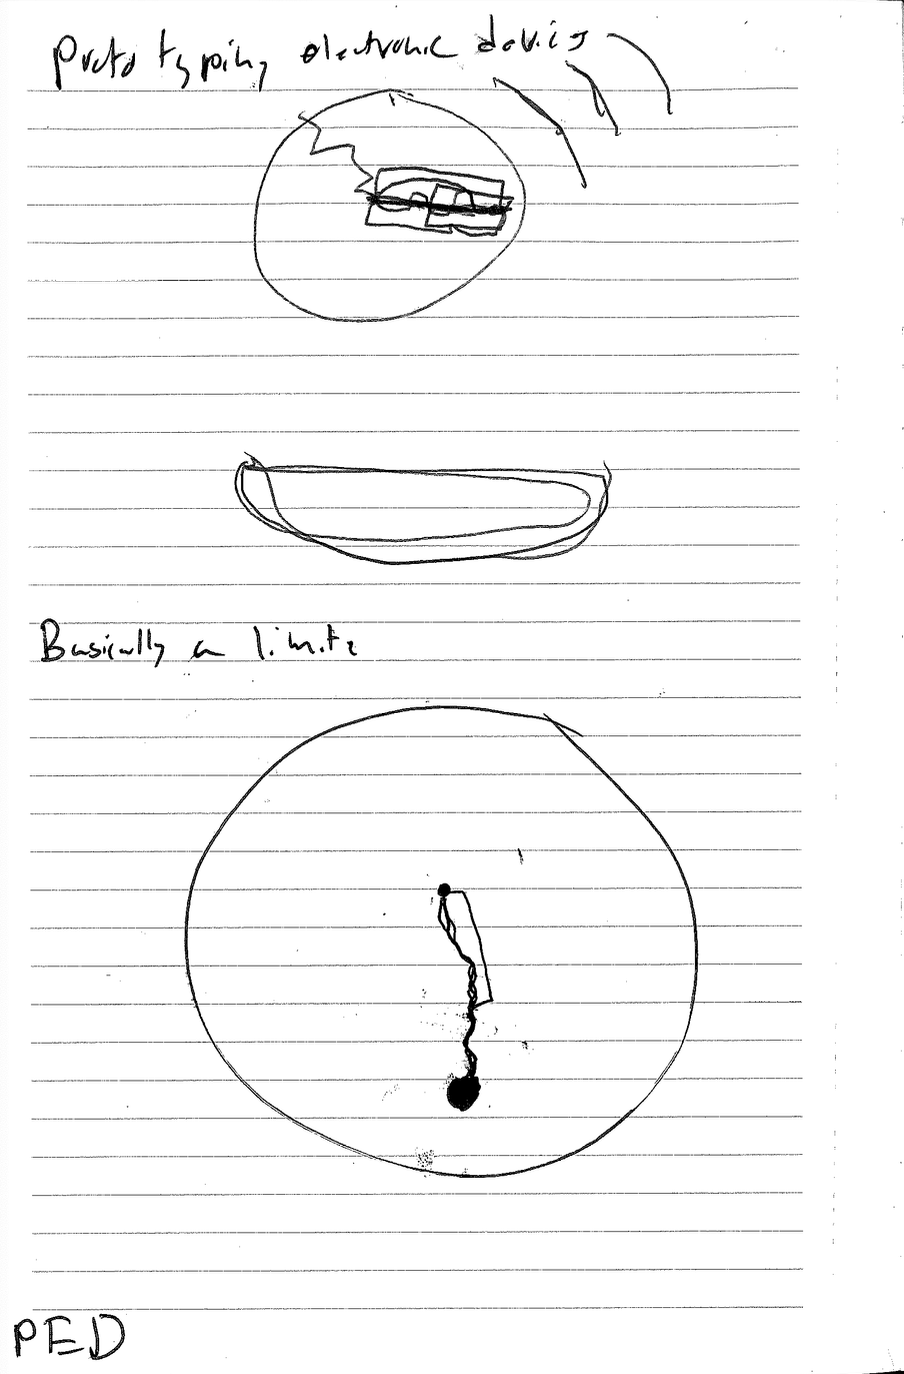 Prototyping electronic devics
Basically a
PED